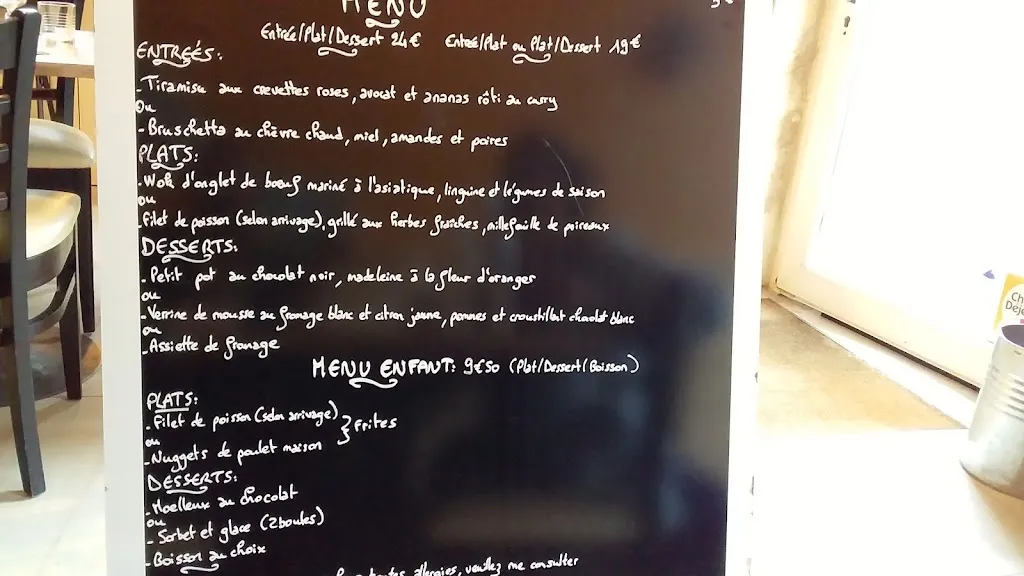 MENU
Entrée/Plat/Dessert 24€ Entrée/Plat ou Plat/Dessert 19€
ENTREÉS:
-Tiramisu aux crevettes roses, avocat et ananas rôti au curry
ou
-Bruschetta au chèvre chaud, miel, amandes et poires
PLATS:
-Wok d'onglet de boeuf mariné à l'asiatique, linguine et légumes de saison
ou
-Filet de poisson (selon arrivage), grillé aux herbes fraîches, millefeuille de poireaux
DESSERTS:
-Petit pot au chocolat noir, madeleine à la fleur d'oranges
ou
-Verrine de mousse au fromage blanc et citron jaune, pommes et croustillant chocolat blanc
ou
-Assiette de fromage
MENU ENFANT: 9€50 (Plat/Dessert/Boisson)
PLATS:
-Filet de poisson (selon arrivage)
ou
} Frites
-Nuggets de poulet maison
DESSERTS:
-Moelleux au chocolat
ou
-Sorbet et glace (2boules)
-Boisson au choix
Pour toutes allergies, veuillez me consulter